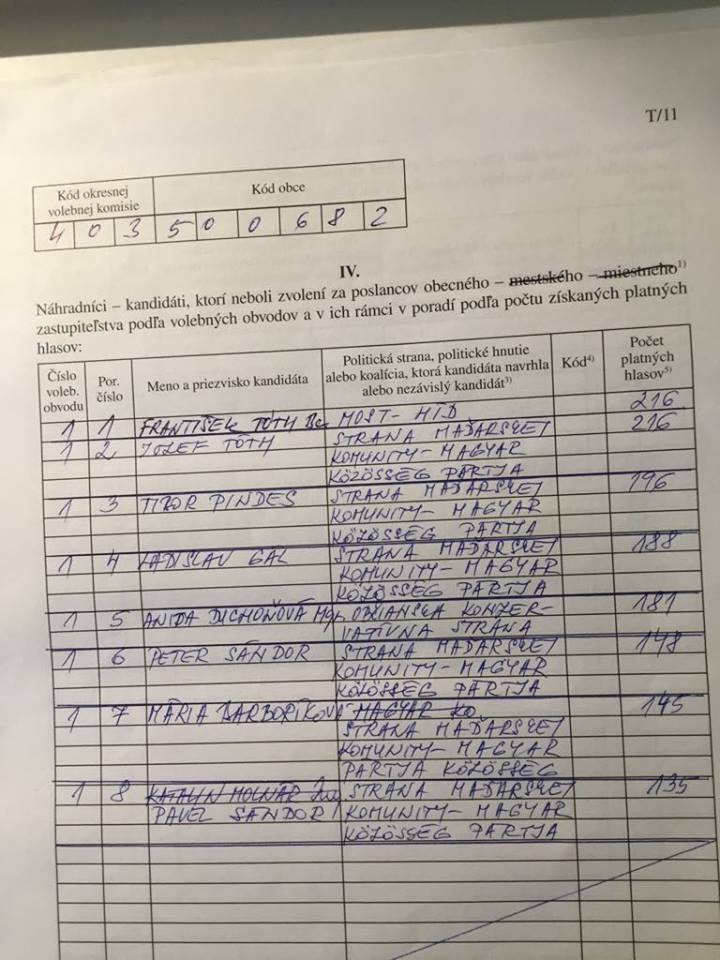 T/11
Kód okresnej volebnej komisie
Kód obce
4 0 3 5 0 0 6 8 2
IV.
Náhradníci – kandidáti, ktorí neboli zvolení za poslancov obecného – mestského – miestneho¹⁾
zastupiteľstva podľa volebných obvodov a v ich rámci v poradí podľa počtu získaných platných
hlasov:
Číslo voleb. obvodu
Por. číslo
Meno a priezvisko kandidáta
Politická strana, politické hnutie alebo koalícia, ktorá kandidáta navrhla alebo nezávislý kandidát³⁾
Kód⁴⁾
Počet platných hlasov⁵⁾
1 1 FRANTIŠEK TÓTH Bc. MOST-HÍD 216
1 2 JOZEF TÓTH STRANA MAĎARSKEJ 216
KOMUNITY-MAGYAR
KÖZÖSSÉG PÁRTJA
1 3 TIBOR PINDES STRANA MAĎARSKEJ 196
KOMUNITY-MAGYAR
KÖZÖSSÉG PÁRTJA
1 4 LADISLAV GÁL STRANA MAĎARSKEJ 188
KOMUNITY-MAGYAR
KÖZÖSSÉG PÁRTJA
1 5 DUCHOŇOVÁ Mgr. OBČIANSKA KONZER- 181
VATÍVNA STRANA
1 6 PETER SÁNDOR STRANA MAĎARSKEJ 148
KOMUNITY-MAGYAR
KÖZÖSSÉG PÁRTJA
1 7 MÁRIA BARBORÍKOVÁ MAGYAR KÖ 145
STRANA MAĎARSKEJ
KOMUNITY-MAGYAR
PARTJA KÖZÖSSÉG
1 8 KATALIN MOLNÁR Ing. STRANA MAĎARSKEJ 135
PAVEL SÁNDOR KOMUNITY-MAGYAR
KÖZÖSSÉG PÁRTJA